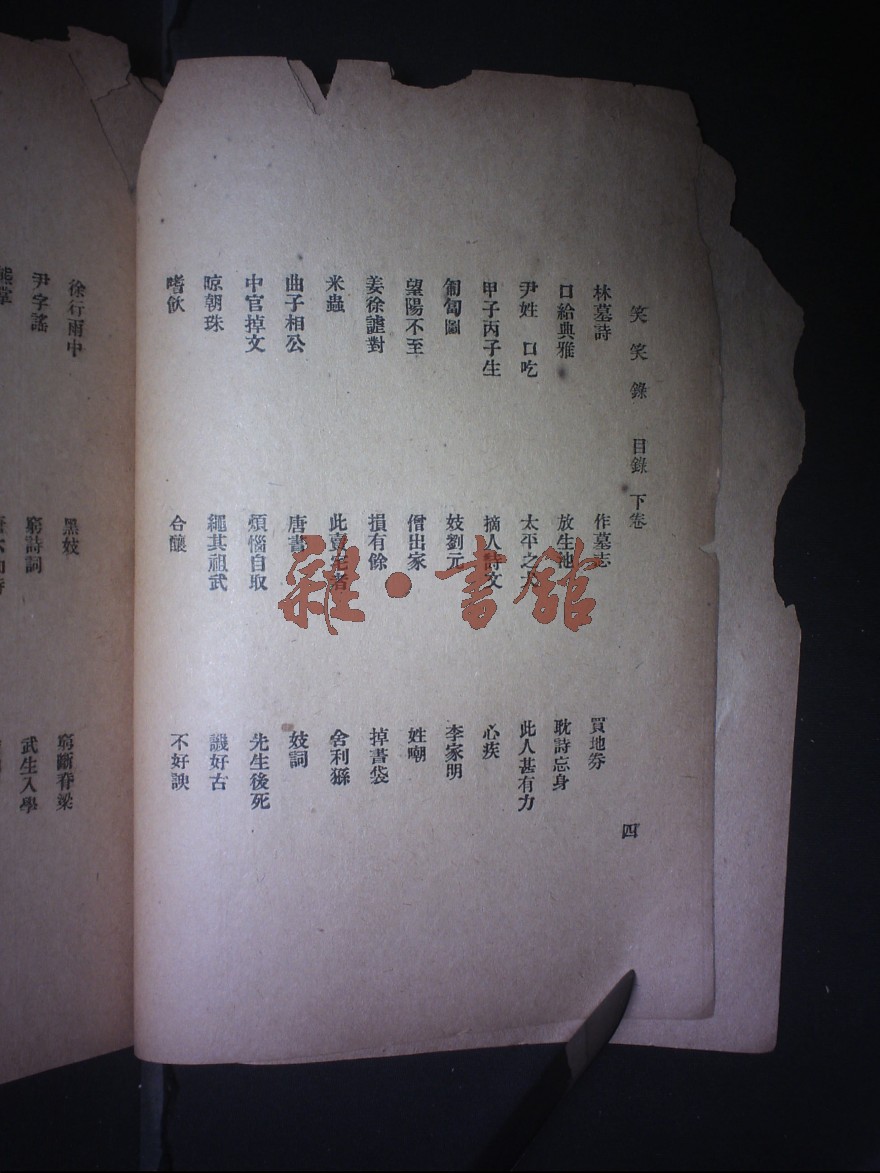 笑笑錄　目錄　下卷　四
林墓詩　作墓志　買地券
口給典雅　放生池　耽詩忘身
尹姓　口吃　太平之　此人甚有力
甲子丙子生　摘人詩文　心疾
匍匐圖　妓劉元　李家明
望陽不至　僧出家　姓嘲
姜徐謔對　損有餘　掉書袋
米蟲　此賣宅者　舍利猻
曲子相公　唐書　妓詞
中官掉文　煩惱自取　先生後死
晾朝珠　繩其祖武　譏好古
嗜飲　合釀　不好諛
徐行雨中　黑妓　窮斷脊梁
尹字謠　窮詩詞　武生入學
熊掌
雜·書館